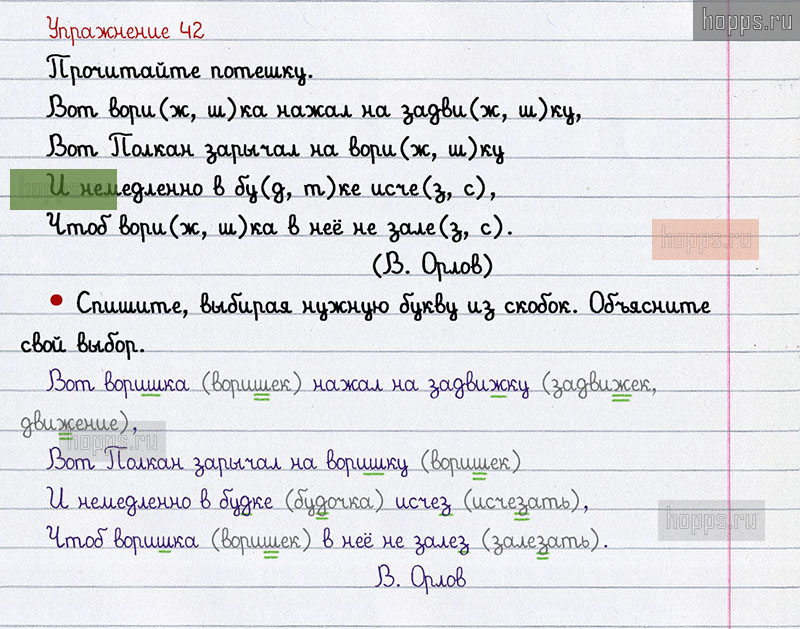 hopps.ru
Упражнение 42
Прочитайте потешку.
Вот вори(ж, ш)ка нажал на задви(ж, ш)ку,
Вот Полкан зарычал на вори(ж, ш)ку
hopps.ru
И немедленно в бу(д, т)ке исче(з, с),
Чтоб вори(ж, ш)ка в неё не зале(з, с).
hopps.ru
(В. Орлов)
• Спишите, выбирая нужную букву из скобок. Объясните
свой выбор.
Вот воришка (воришек) нажал на задвижку (задвижек,
движение),
hopps.ru
Вот Полкан зарычал на воришку (воришек)
И немедленно в будке (будочка) исчез (исчезать),
hopps.ru
Чтоб воришка (воришек) в неё не залез (залезать).
В. Орлов